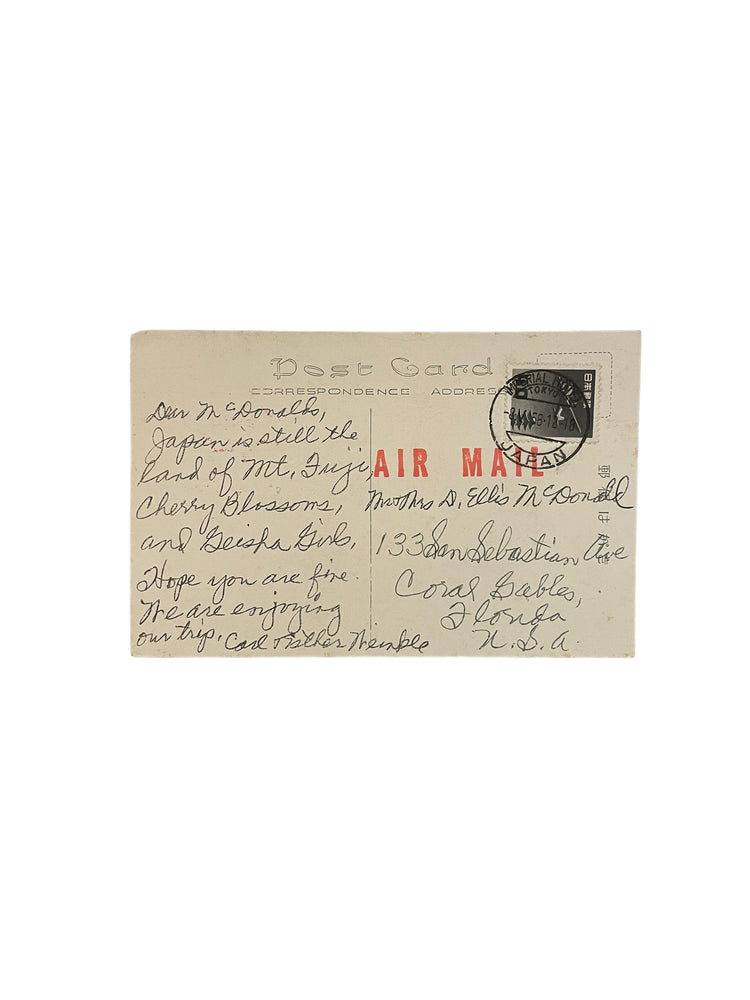 Post Card
CORRESPONDENCE ADDRESS
IMPERIAL HOTEL
TOKYO
JAPAN
日本郵便
AIR MAIL
Dear McDonalds,
Japan is still the
land of Mt. Fuji,
Cherry Blossoms,
and Geisha Girls.
Hope you are fine.
We are enjoying
our trip.
Carl Esther Weinkle
Mr & Mrs D. Ellis McDonald
133 San Sebastian Ave
Coral Gables,
Florida
U.S.A.